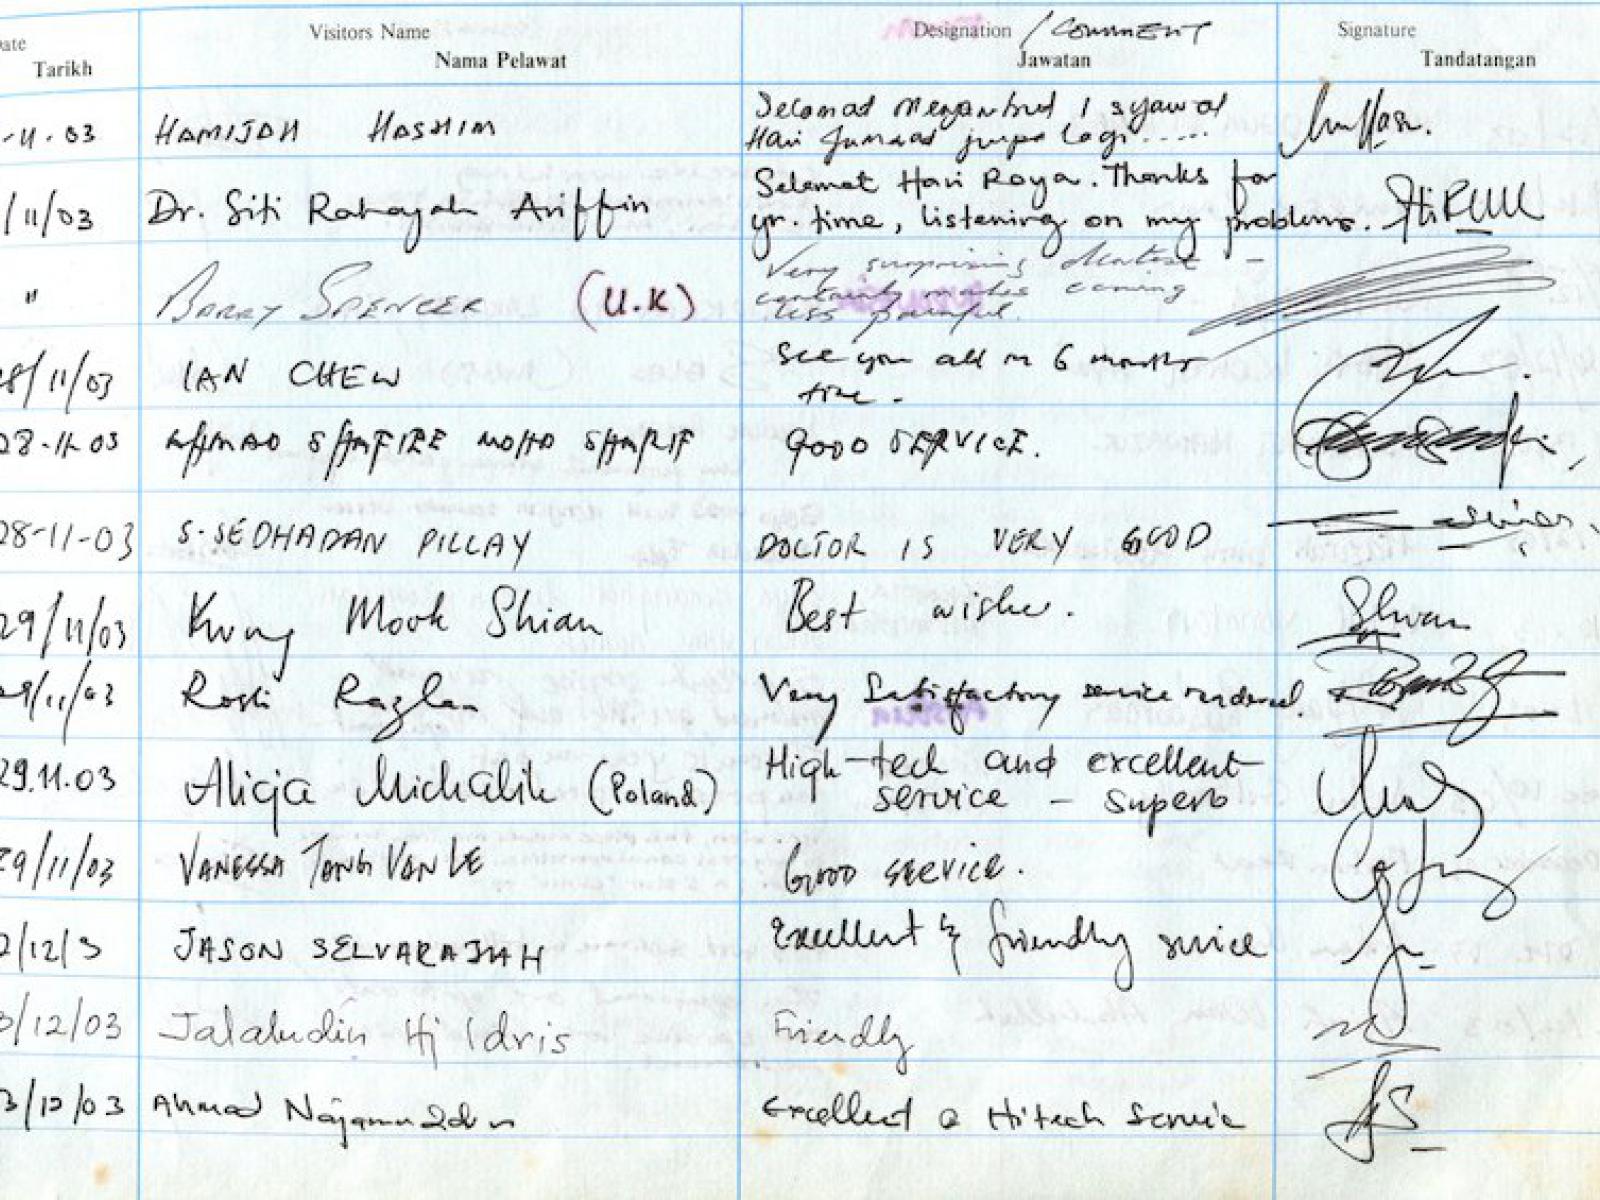 Date Visitors Name Designation / COMMENT Signature
Tarikh Nama Pelawat Jawatan Tandatangan
-11.03 HAMIJAH HASHIM Selamat Menyambut 1 syawal
Hari Jumaat jumpa lagi ....
/11/03 Dr. Siti Rahayah Ariffin Selamat Hari Raya. Thanks for
yr. time, listening on my problems.
" BARRY SPENCER (U.K) Very surprising dentist -
certainly coming
less painful.
28/11/03 IAN CHEW See you all in 6 months
time.
28-11-03 AHMAD SHAFIEE MOHD SHARIF GOOD SERVICE.
28-11-03 S. SEDHADAN PILLAY DOCTOR IS VERY GOOD
29/11/03 Kung Mook Shian Best wishes. Shian
29/11/03 Rosli Razlan Very Satisfactory service rendered.
29.11.03 Alicja Michalik (Poland) High-tech and excellent
service - superb
29/11/03 VANESSA TONG VAN LE Good service.
2/12/3 JASON SELVARAJAH Excellent & friendly service
3/12/03 Jalaludin Hj Idris Friendly
3/12/03 Ahmad Najamuddin Excellent & Hitech Service